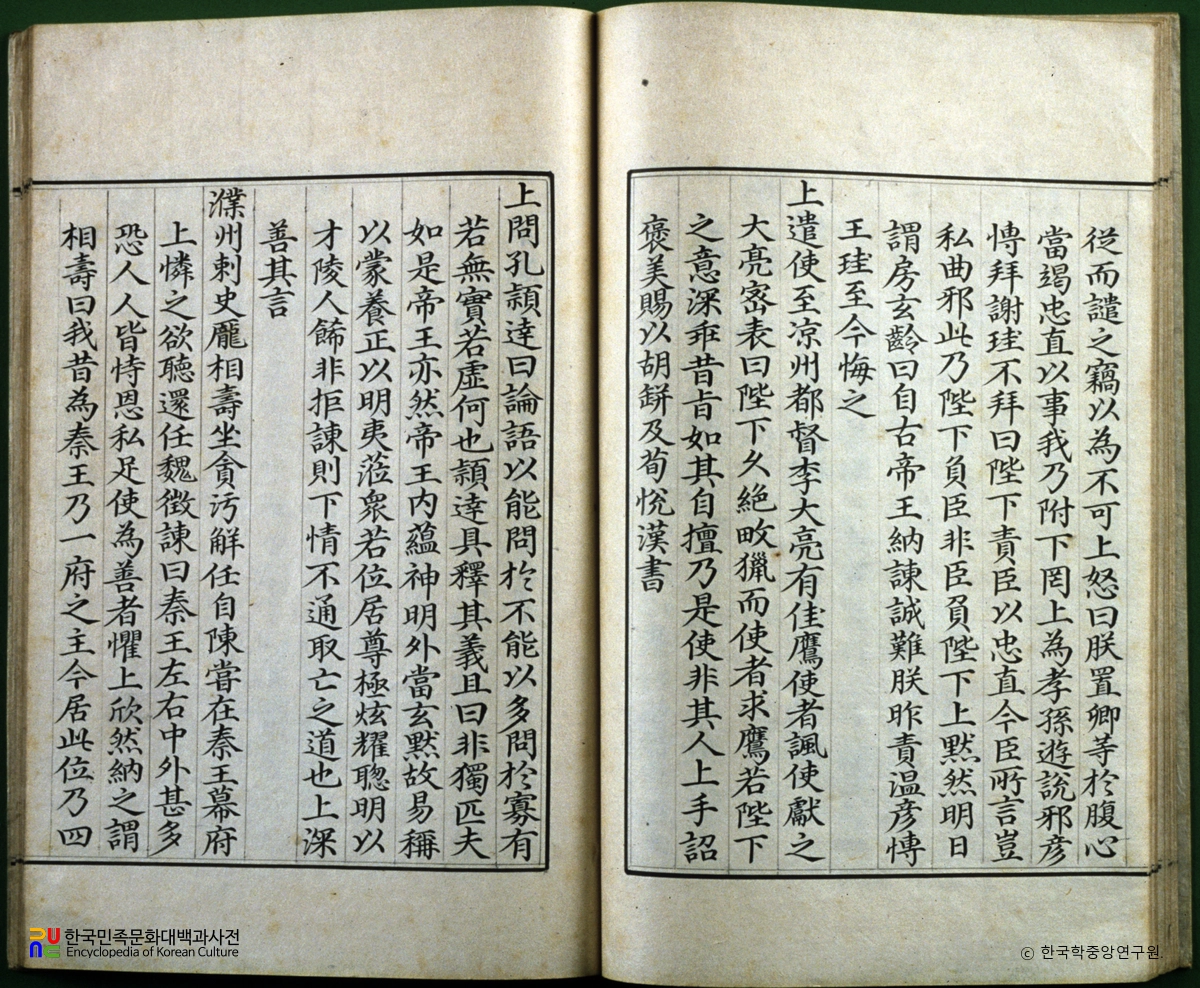 從而譴之竊以為不可上怒曰朕置卿等於腹心
當竭忠直以事我乃附下罔上為孝孫遊說邪彦
愽拜謝珪不拜曰陛下責臣以忠直今臣所言豈
私曲邪此乃陛下負臣非臣負陛下上默然明日
謂房玄齡曰自古帝王納諫誠難朕昨責温彦愽
王珪至今悔之
上遣使至凉州都督李大亮有佳鷹使者諷使獻之
大亮宻表曰陛下久絶畋獵而使者求鷹若陛下
之意深乖昔旨如其自擅乃是使非其人上手詔
褒美賜以胡缾及荀恱漢書
上問孔穎逹曰論語以能問於不能以多問於寡有
若無實若虛何也穎逹具釋其義且曰非獨匹夫
如是帝王亦然帝王内蘊神明外當玄默故易稱
以蒙養正以明夷蒞衆若位居尊極炫耀聰明以
才陵人飾非拒諫則下情不通取亡之道也上深
善其言
濮州刺史龐相壽坐貪汚解任自陳嘗在秦王幕府
上憐之欲聽還任魏徵諫曰秦王左右中外甚多
恐人人皆恃恩私足使為善者懼上欣然納之謂
相壽曰我昔為秦王乃一府之主今居此位乃四
한국민족문화대백과사전
Encyclopedia of Korean Culture
ⓒ 한국학중앙연구원